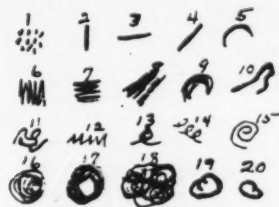 1 2 3 4 5
6 7 9 10
11 12 13 14 15
16 17 18 19 20